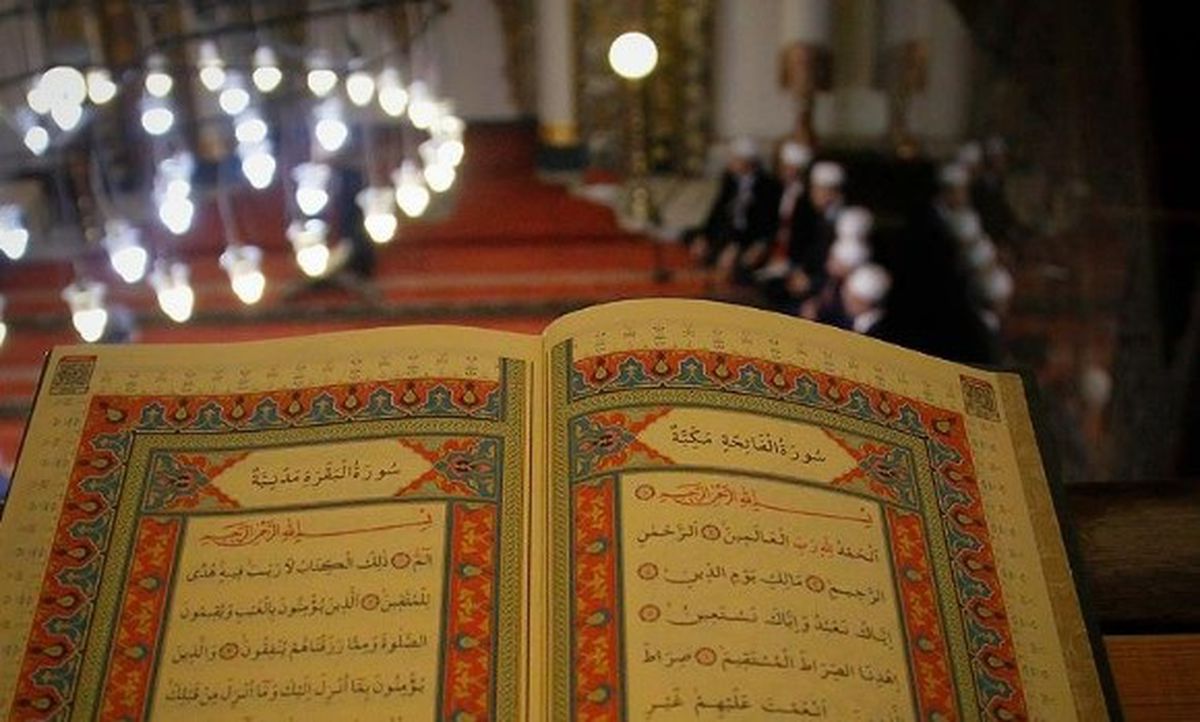 سُورَةُ الْفَاتِحَةِ مَكِّيَّةٌ
بِسْمِ اللّٰهِ الرَّحْمٰنِ الرَّحِيمِ
اَلْحَمْدُ لِلّٰهِ رَبِّ الْعَالَمِينَ اَلرَّحْمٰنِ
الرَّحِيمِ مَالِكِ يَوْمِ الدِّينِ
اِيَّاكَ نَعْبُدُ وَاِيَّاكَ نَسْتَعِينُ
اِهْدِنَا الصِّرَاطَ الْمُسْتَقِيمَ صِرَاطَ
الَّذِينَ اَنْعَمْتَ عَلَيْهِمْ غَيْرِ
سُورَةُ الْبَقَرَةِ مَدَنِيَّةٌ
بِسْمِ اللّٰهِ الرَّحْمٰنِ الرَّحِيمِ
الٓمٓ ذٰلِكَ الْكِتَابُ لَا رَيْبَ فِيهِ هُدًى
لِلْمُتَّقِينَ اَلَّذِينَ يُؤْمِنُونَ بِالْغَيْبِ وَيُقِيمُونَ
الصَّلٰوةَ وَمِمَّا رَزَقْنَاهُمْ يُنْفِقُونَ وَالَّذِينَ
يُؤْمِنُونَ بِمَا اُنْزِلَ اِلَيْكَ وَمَا اُنْزِلَ مِنْ قَبْلِكَ